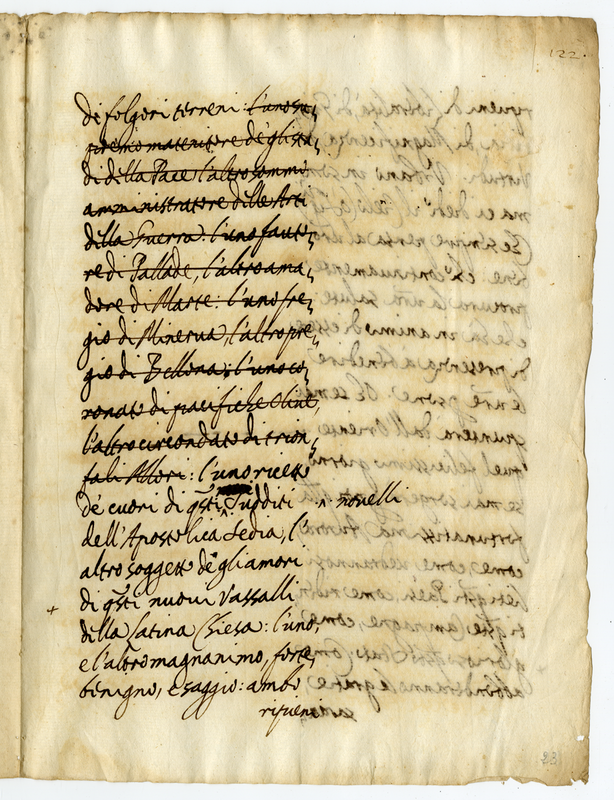 122.
de folgori terreni: l'uno su,
premo materiere de gli sta,
di della Pace l'altro sommo
amministratore delle Arti
della Guerra: l'uno fauto,
re di Pallade, l'altro ama,
dore di Marte: l'uno fre,
gio di Minerua, l'altro pre,
gio di Bellona: l'uno co,
ronato di pacifiche Oliue,
l'altro circondato di trion,
fali Allori: l'uno ricetto
de cuori di q̃sti sudditi ^ nouelli
dell'Apostolica Sedia, l'
altro soggetto de gli amori
+ di q̃sti nuoui Vassalli
della Latina Chiesa: l'uno,
e l'altro magnanimo, forte,
benigno, e saggio: ambo
ripieni
23